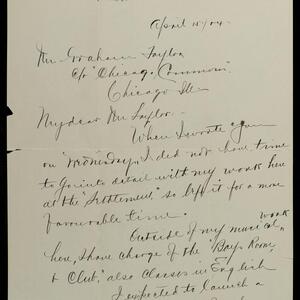 April 15/04.
Mr. Graham Taylor
c/o "Chicago Commons"
Chicago Ills
My dear Mr Taylor.
When I wrote you
on Wednesday, I did not have time
to go into detail with my work here
at the "Settlement" so left it for a more
favourable time.
Outside of my musical work
here, I have charge of the "Boys Room
& Club," also Classes in English
I expected to launch a